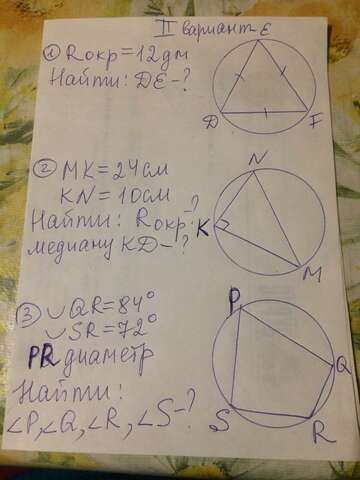 II вариант
① Rокр = 12дм
Найти: DE - ?
E
D
F
② MK = 24 см
KN = 10 см
Найти: Rокр - ?
медиану KD - ?
N
K
M
③ ∪QR = 84°
∪SR = 72°
PR диаметр
Найти:
∠P, ∠Q, ∠R, ∠S - ?
P
Q
S
R